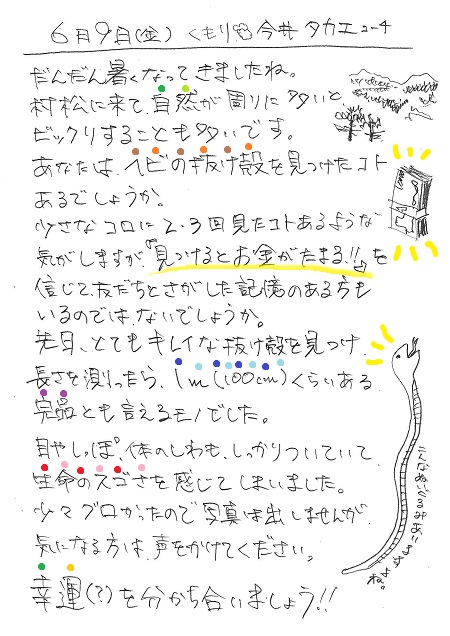 6月9日(金) くもり 今井タカエコーチ
だんだん暑くなってきましたね。
村松に来て、自然が周りに多いと
ビックリすることも多いです。
あなたは、ヘビの抜け殻を見つけたコト
あるでしょうか。
少さなコロに2・3回見たコトあるような
気がしますが「見つけるとお金がたまる!!」を
信じて、友だちとさがした記憶のある方も
いるのでは、ないでしょうか。
先日、とてもキレイな抜け殻を見つけ
長さを測ったら、1m(100cm)くらいある
完品とも言えるモノでした。
目や しっぽ、体のしわも、しっかりついていて
生命のスゴさを感じてしまいました。
少々グロかったので写真は出しませんが
気になる方は、声をかけてください。
幸運(?)を分かち合いましょう!!
こんなぬいぐるみありますよね。